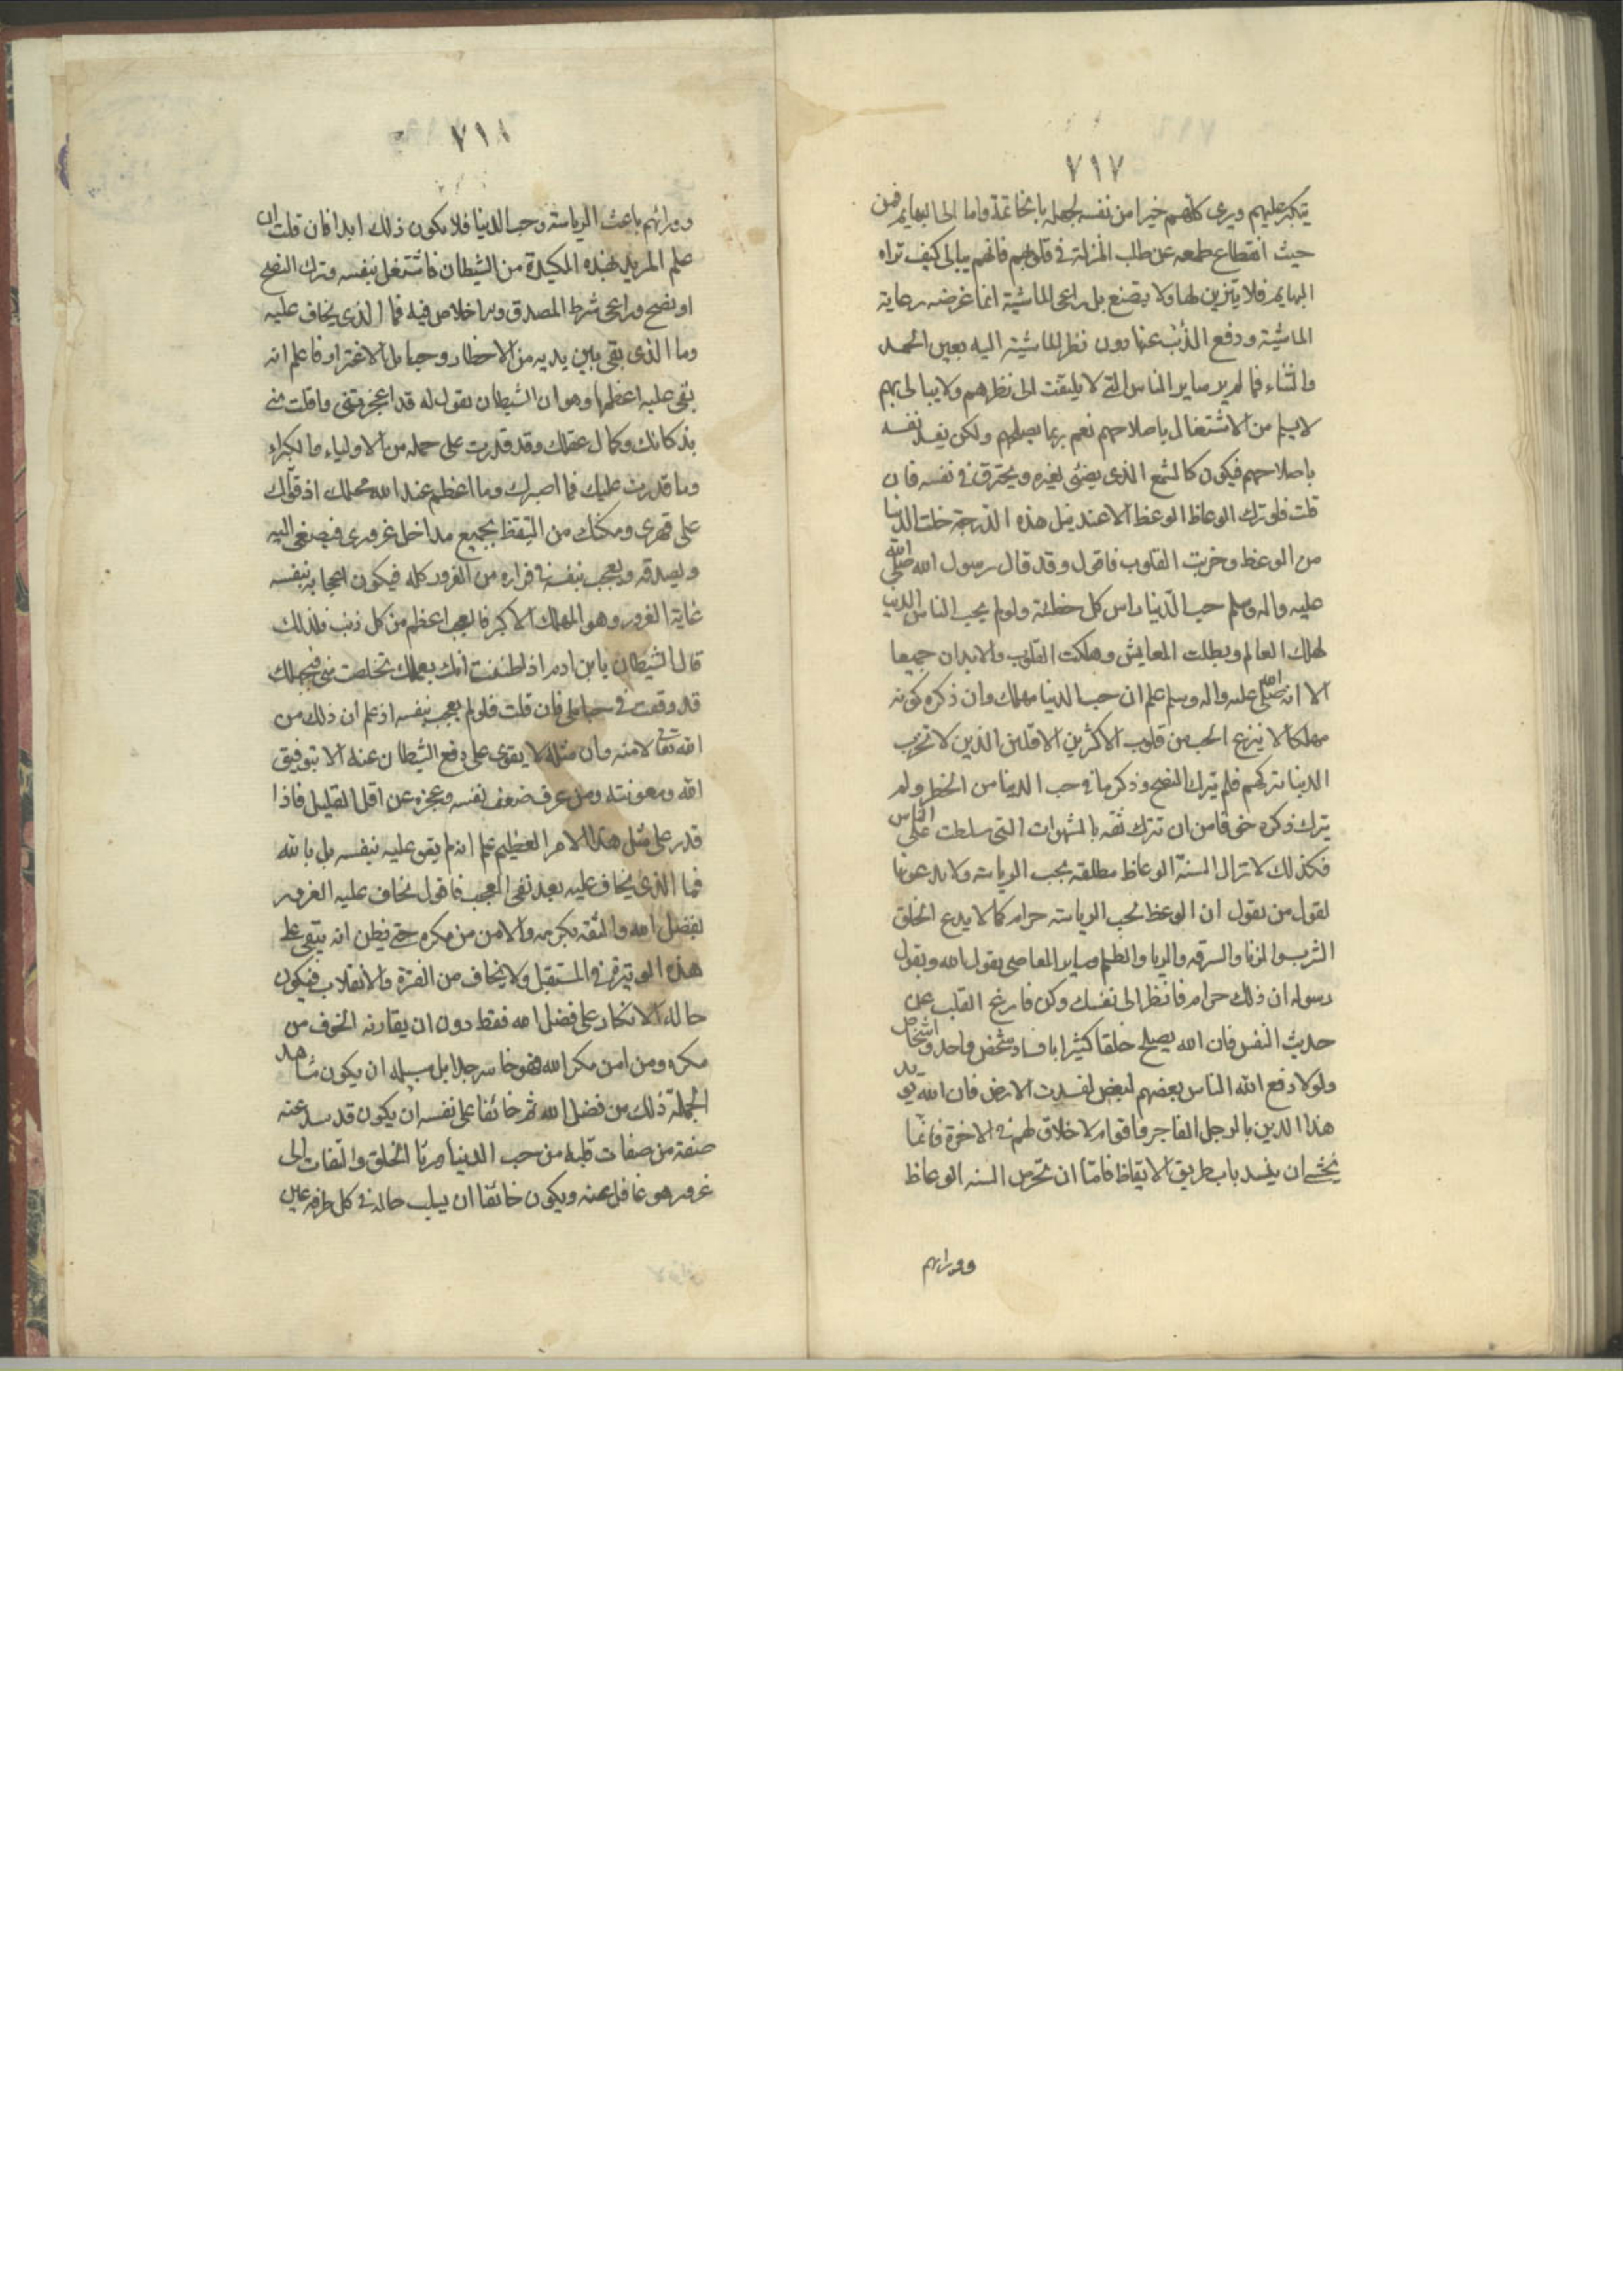 ٧١٧
يتكبر عليهم ويرى كلهم خيرا من نفسه لجهله بالخاتمة واما الى البهايم فمن
حيث انقطاع طمعه عن طلب المنزلة في قلوبهم فانهم يبالى كيف تراه
البهايم فلا يتزين لها ولا يصنع بل راعى الماشية انما غرضه رعاية
الماشية ودفع الذئب عنها دون نظر الماشية اليه بعين الحمد
والثناء فما لم ير ساير الناس التى لا يلتفت الى نظرهم ولا يبالى بهم
لا يسلم من الاشتغال باصلاحهم نعم ربما يصلحهم ولكن يفسد نفسه
باصلاحهم فيكون كالشمع الذى يضئ لغيره ويحترق في نفسه فان
قلت فلو ترك الوعاظ الوعظ الا عند نيل هذه الدرجة خلت الدنيا
من الوعظ وخربت القلوب فاقول وقد قال رسول الله صلى الله
عليه واله وسلم حب الدنيا راس كل خطئة ولو لم يحب الناس الدنيا
لهلك العالم وبطلت المعايش وهلكت القلوب والابدان جميعا
الا انه صلى الله عليه واله وسلم علم ان حب الدنيا مهلك وان ذكره كونه
مهلكا لا ينزع الحب من قلوب الاكثرين الا قلين الذين لا تخرب
الدنيا بتركهم فلم يترك النصح وذكر ما في حب الدنيا من الخطر ولم
يترك ذكره خوفا من ان تترك ثقه بالشهوات التى سلطت على الناس
فكذلك لا تزال السنة الوعاظ مطلقه بحب الرياسة ولا يدعونها
لقول من يقول ان الوعظ لحب الرياسة حرام كما لا يدع الخلق
الشرب والزنا والسرقه والربا والظلم وساير المعاصى بقول الله وبقول
رسوله ان ذلك حرام فانظر الى نفسك وكن فارغ القلب عن
حديث النفس فان الله يصلح خلقا كثيرا بافساد شخص واحد واشخاص
ولولا دفع الله الناس بعضهم لبعض لفسدت الارض فان الله يويد
هذا الدين بالرجل الفاجر فاقوام لا خلاق لهم في الاخرة فانما
يخشى ان يفسد باب طريق الايقاظ فاما ان تخرس السنه الوعاظ
وورائهم
٧١٨
وورائهم باعث الرياسة وحب الدنيا فلا يكون ذلك ابدا فان قلت ان
علم المريد بهذه المكيدة من الشيطان فاشتغل بنفسه وترك النصح
او نصح وراعى شرط الصدق والاخلاص فيه فما الذى يخاف عليه
وما الذى بقى بين يديه من الاخطار وحبايل الاغترار فاعلم انه
بقى عليه اعظمها وهو ان الشيطان يقول له قد اعجزتنى وافلت منى
بذكائك وكمال عقلك وقد قدرت على جمله من الاولياء والكبراء
وما قدرت عليك فما اصبرك وما اعظم عند الله محلك اذ قواك
على قهرى ومكنك من التيقظ بجميع مداخل غرورى فيصغى اليه
ويصدقه ويعجب بنفسه في فراره من الغرور كله فيكون اعجابه بنفسه
غاية الغرور وهو المهلك الاكبر فالعجب اعظم من كل ذنب فلذلك
قال الشيطان يا بن ادم اذا ظننت انك بعملك تخلصت منى فبجهلك
قد وقعت في حبايلى فان قلت فلو لم يعجب بنفسه اذ علم ان ذلك من
الله تعالى لا منه وان مثله لا يقوى على دفع الشيطان عنه الا بتوفيق
الله ومعونته ومن عرف ضعف نفسه وعجزه عن اقل القليل فاذا
قدر على مثل هذا الامر العظيم علم انه لم يقو عليه بنفسه بل بالله
فما الذى يخاف عليه بعد نفى العجب فاقول يخاف عليه الغرور
بفضل الله والثقه بكرمه والامن من مكره حتى يظن انه يبقى على
هذه الوتيرة في المستقبل ولا يخاف من الفترة والانقلاب فيكون
حاله الاتكار على فضل الله فقط دون ان يقارنه الخوف من
مكره ومن امن مكر الله فهو خاسر جدا بل سبيله ان يكون مشاهد
الجملة ذلك من فضل الله ثم خائفا على نفسه ان يكون قد سد عنه
صفة من صفات قلبه من حب الدنيا وريا الخلق والتفات الى
غرور هو غافل عنه ويكون خائفا ان يسلب حاله في كل طرفه عين